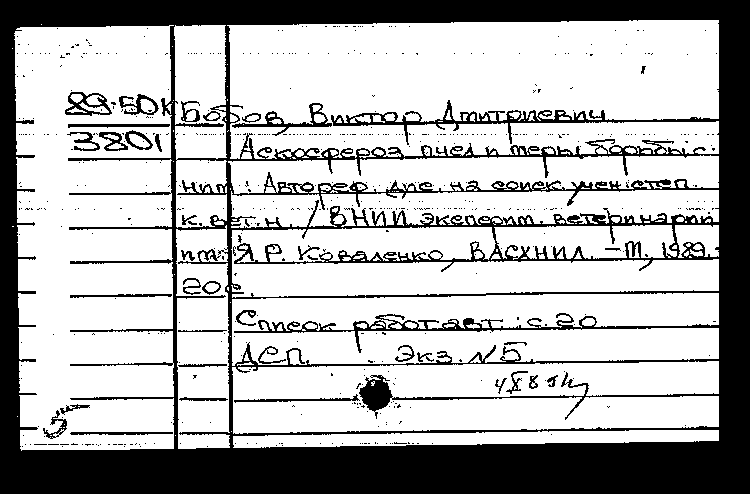 89-50К Бобов, Виктор Дмитриевич
3801 Аскосфероз пчел и меры борьбы с
ним : Автореф. дис. на соиск. учен. степ.
к. вет. н. / ВНИИ эксперим. ветеринарии
им. Я. Р. Коваленко, ВАСХНИЛ. – М., 1989. –
20 с.
Список работ авт.: с. 20
ДСП. Экз. № 5.
5